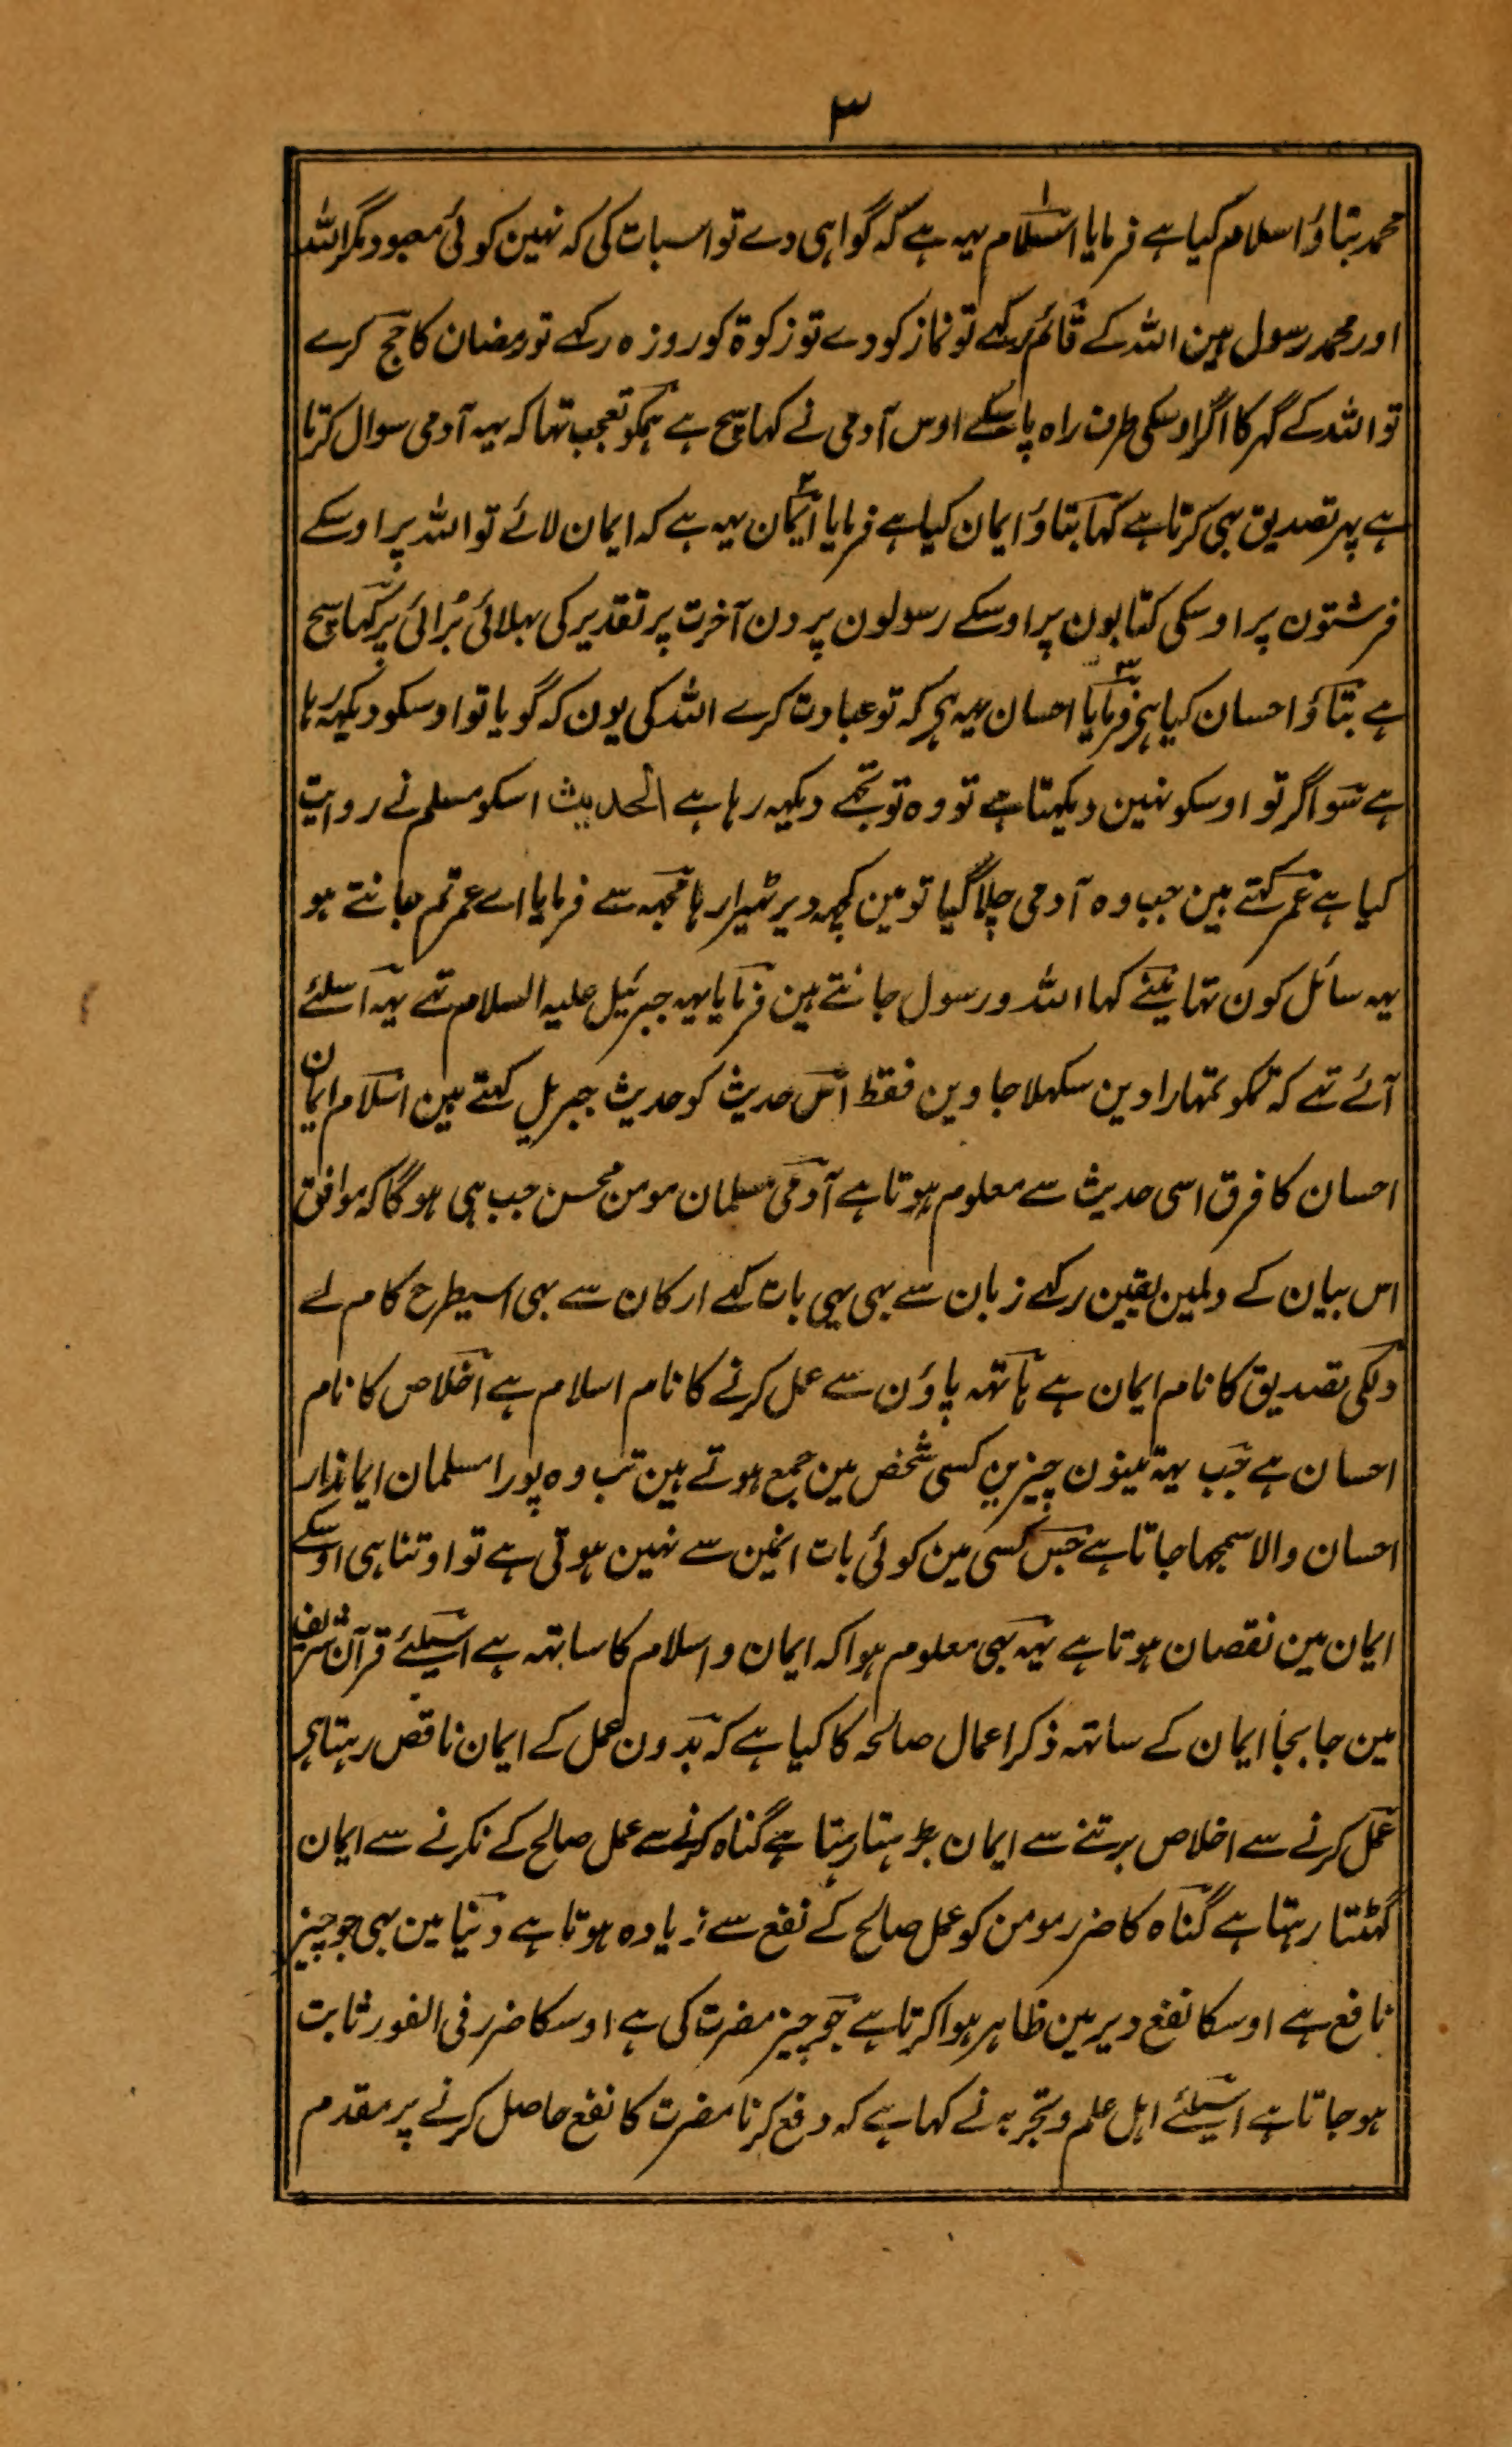 ۳
محمد بتاؤ اسلام کیا ہے فرمایا اسلام یہہ ہے کہ گواہی دے تو اسبات کی کہ نہین کوئی معبود مگر اللہ
اور محمد رسول ہین اللہ کے قائم رکہے تو نماز کو دے تو زکوۃ کو روزہ رکہے تو رمضان کا حج کرے
تو اللہ کے گہر کا اگر اوسکی طرف راہ پا سکے اوس آدمی نے کہا سچ ہے ہمکو تعجب تہا کہ یہہ آدمی سوال کرتا
ہے پہر تصدیق بہی کرتا ہے کہا بتاؤ ایمان کیا ہے فرمایا ایمان یہہ ہے کہ ایمان لائے تو اللہ پر اوسکے
فرشتون پر اوسکی کتابون پر اوسکے رسولون پر دن آخرت پر تقدیر کی بہلائی بُرائی پر کہا سچ
ہے بتاؤ احسان کیا ہی فرمایا احسان یہہ ہی کہ تو عبادت کرے اللہ کی یون کہ گویا تو اوسکو دیکہہ رہا
ہے سو اگر تو اوسکو نہین دیکہتا ہے تو وہ تو تجہے دیکہہ رہا ہے الحدیث اسکو مسلم نے روایت
کیا ہے عمر کہتے ہین جب وہ آدمی چلا گیا تو مین کچہہ دیر ٹہیرا رہا مجہہ سے فرمایا اے عمر تم جانتے ہو
یہہ سائل کون تہا مینے کہا اللہ و رسول جانتے ہین فرمایا یہہ جبرئیل علیہ السلام تہے یہہ اسلئے
آئے تہے کہ تمکو تمہارا دین سکہلا جاوین فقط اس حدیث کو حدیث جبریل کہتے ہین اسلام ایمان
احسان کا فرق اسی حدیث سے معلوم ہوتا ہے آدمی مسلمان مومن محسن جب ہی ہو گا کہ موافق
اس بیان کے دلمین یقین رکہے زبان سے بہی یہی بات کہے ارکان سے بہی اسیطرح کام لے
دلکی تصدیق کا نام ایمان ہے ہاتہہ پاؤن سے عمل کرنے کا نام اسلام ہے اخلاص کا نام
احسان ہے جب یہہ تینون چیزین کسی شخص مین جمع ہوتے ہین تب وہ پورا مسلمان ایماندار
احسان والا سمجہا جاتا ہے جس کسی مین کوئی بات انمین سے نہین ہوتی ہے تو اوتنا ہی اوسکے
ایمان مین نقصان ہوتا ہے یہہ بہی معلوم ہوا کہ ایمان و اسلام کا ساتہہ ہے اسیلئے قرآن شریف
مین جا بجا ایمان کے ساتہہ ذکر اعمال صالحہ کا کیا ہے کہ بدون عمل کے ایمان ناقص رہتا ہی
عمل کرنے سے اخلاص برتنے سے ایمان بڑہتا رہتا ہے گناہ کرنے سے عمل صالح کے نکرنے سے ایمان
گہٹتا رہتا ہے گناہ کا ضرر مومن کو عمل صالح کے نفع سے زیادہ ہوتا ہے دنیا مین بہی جو چیز
نافع ہے اوسکا نفع دیر مین ظاہر ہوا کرتا ہے جو چیز مضرت کی ہے اوسکا ضرر فی الفور ثابت
ہو جاتا ہے اسیلئے اہل علم و تجربہ نے کہا ہے کہ دفع کرنا مضرت کا نفع حاصل کرنے پر مقدم